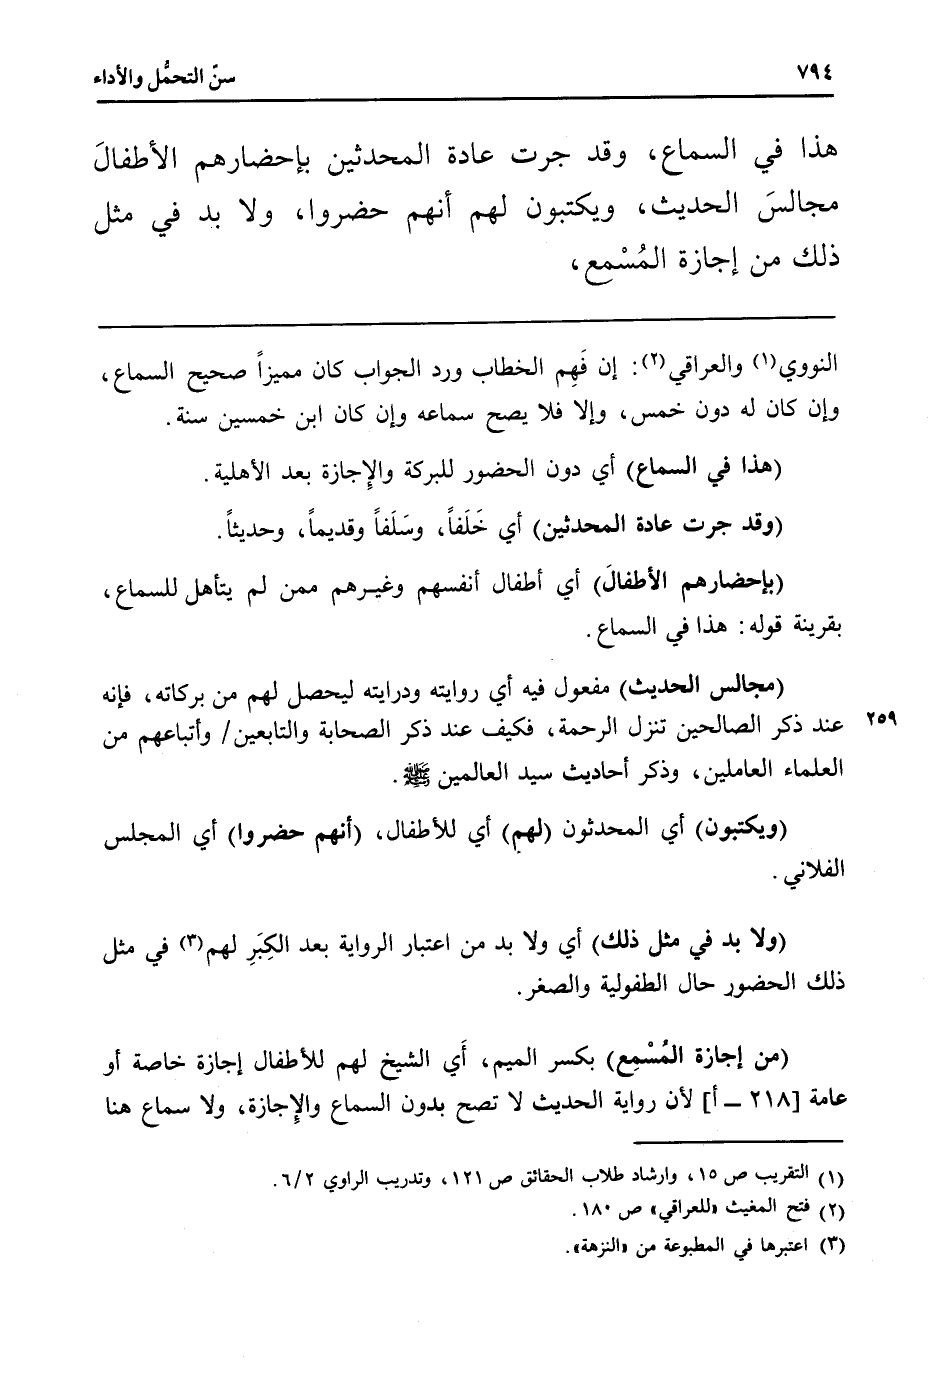 ٧٩٤
سنّ التحمُّل والأداء
هذا في السماع، وقد جرت عادة المحدثين بإحضارهم الأطفالَ
مجالسَ الحديث، ويكتبون لهم أنهم حضروا، ولا بد في مثل
ذلك من إجازة المُسْمِع،
النووي(١) والعراقي(٢): إن فَهِم الخطاب ورد الجواب كان مميزاً صحيح السماع،
وإن كان له دون خمس، وإلا فلا يصح سماعه وإن كان ابن خمسين سنة.
(هذا في السماع) أي دون الحضور للبركة والإِجازة بعد الأهلية.
(وقد جرت عادة المحدثين) أي خَلَفاً، وسَلَفاً وقديماً، وحديثاً.
(بإحضارهم الأطفالَ) أي أطفال أنفسهم وغيرهم ممن لم يتأهل للسماع،
بقرينة قوله: هذا في السماع.
(مجالس الحديث) مفعول فيه أي روايته ودرايته ليحصل لهم من بركاته، فإنه
عند ذكر الصالحين تنزل الرحمة، فكيف عند ذكر الصحابة والتابعين/ وأتباعهم من
٢٥٩
العلماء العاملين، وذكر أحاديث سيد العالمين ﷺ.
(ويكتبون) أي المحدثون (لهم) أي للأطفال، (أنهم حضروا) أي المجلس
الفلاني.
(ولا بد في مثل ذلك) أي ولا بد من اعتبار الرواية بعد الكِبَرِ لهم(٣) في مثل
ذلك الحضور حال الطفولية والصغر.
(من إجازة المُسْمِع) بكسر الميم، أَي الشيخ لهم للأطفال إجازة خاصة أو
عامة [٢١٨ ــ أ] لأن رواية الحديث لا تصح بدون السماع والإِجازة، ولا سماع هنا
(١) التقريب ص ١٥، وارشاد طلاب الحقائق ص ١٢١، وتدريب الراوي ٦/٢.
(٢) فتح المغيث «للعراقي» ص ١٨٠.
(٣) اعتبرها في المطبوعة من «النزهة».